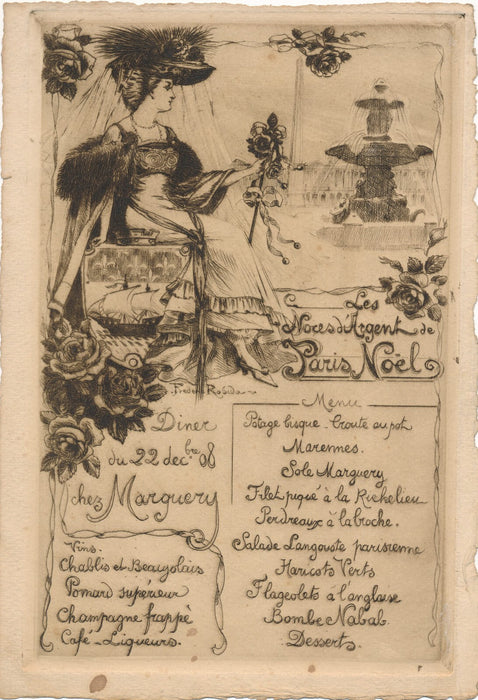 Les
Noces d'Argent de
Paris Noël
Frédéric Robida
Diner
du 22 dec.bre 08
chez Marguery
Vins.
Chablis et Beaujolais
Pomard supérieur
Champagne frappé
Café - Liqueurs.
Menu
Potage bisque - Croute au pot
Marennes.
Sole Marguery
Filet piqué à la Richelieu
Perdreaux à la broche.
Salade Langouste parisienne
Haricots Verts
Flageolets à l'anglaise
Bombe Nabab
Desserts.